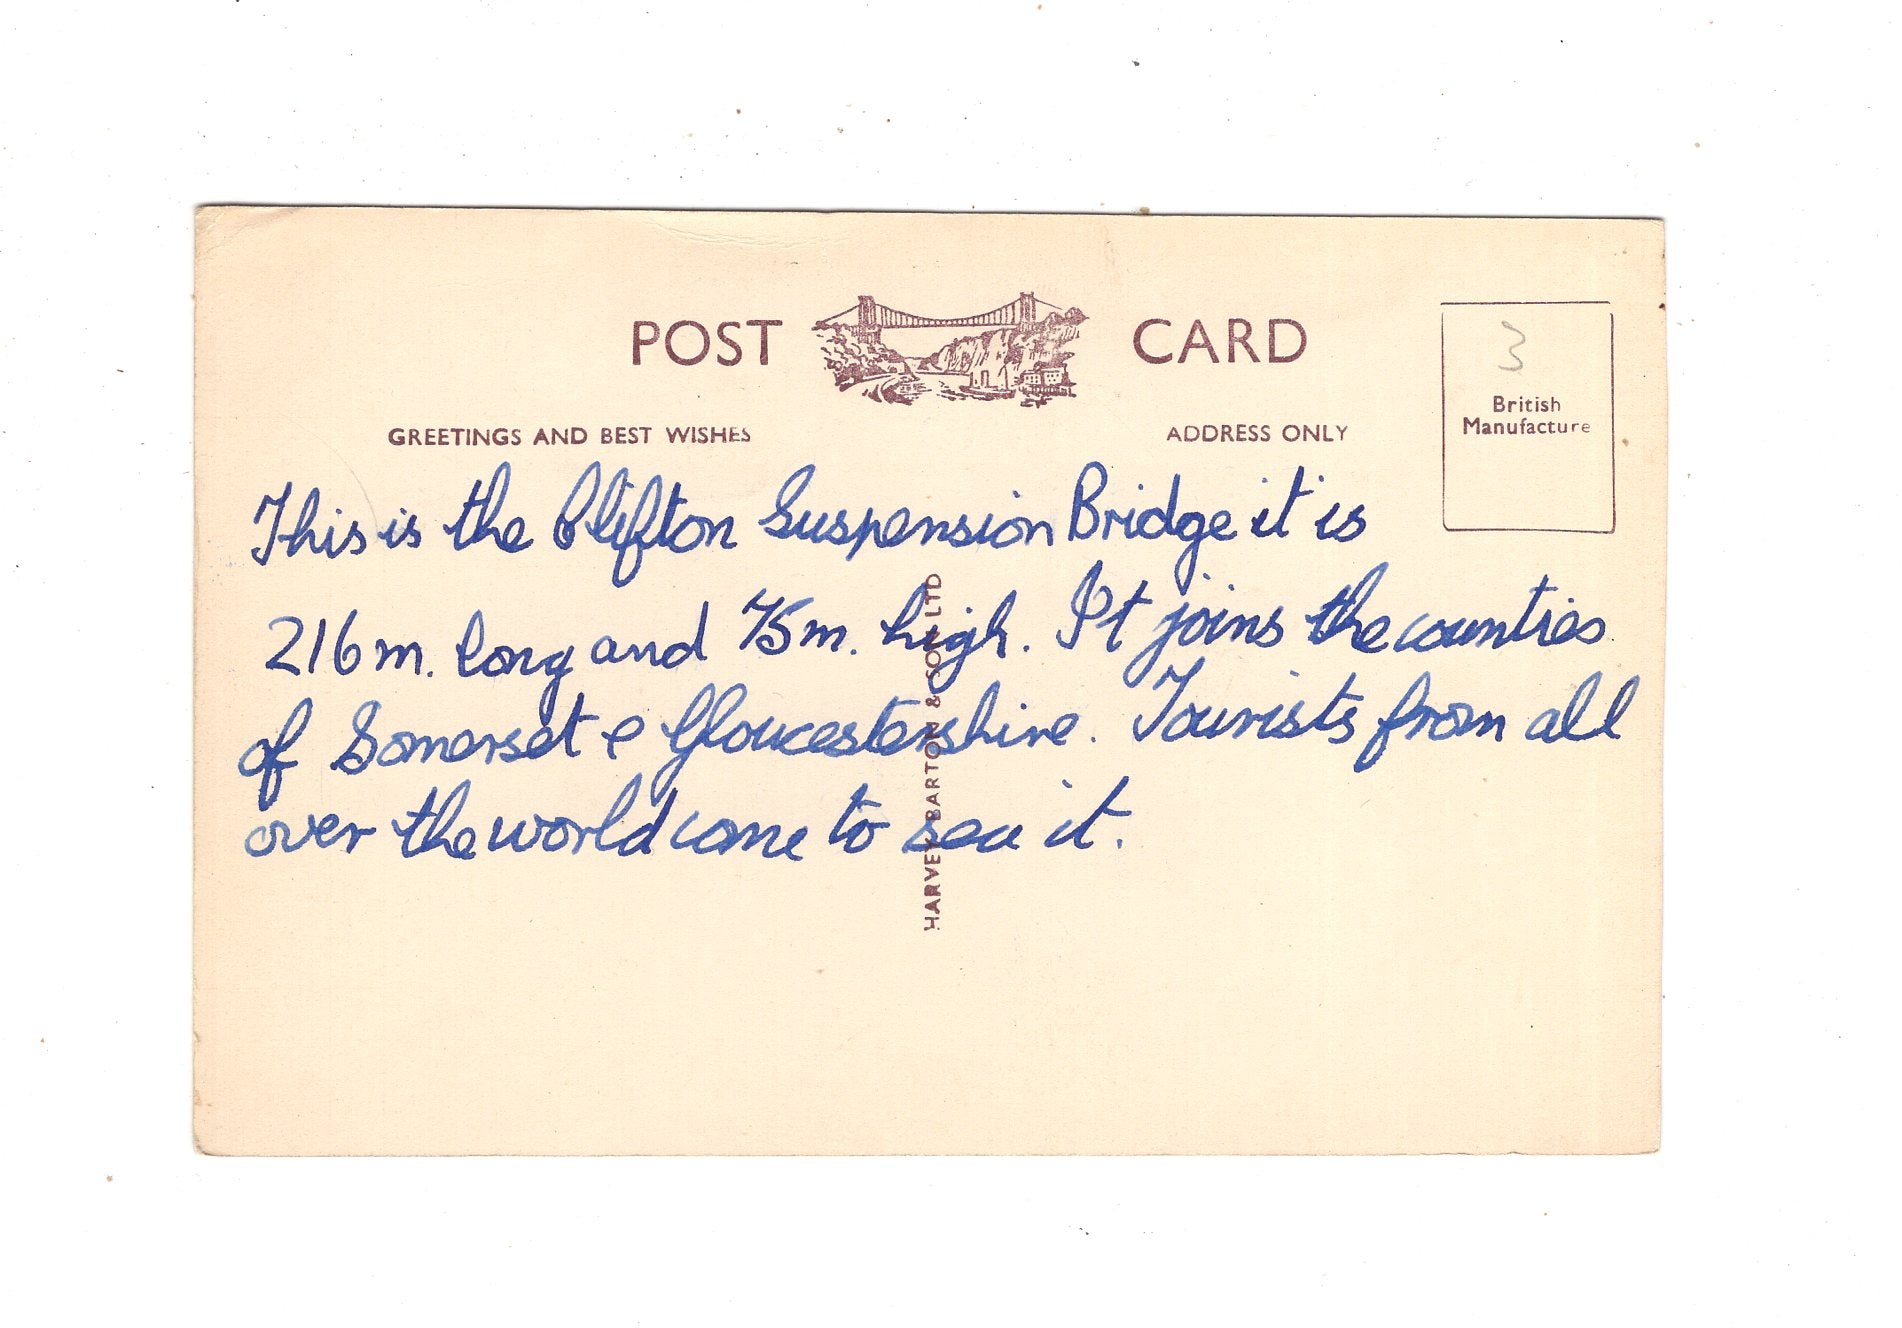 POST CARD
GREETINGS AND BEST WISHES
ADDRESS ONLY
3
British
Manufacture
This is the Clifton Suspension Bridge it is
216m. long and 75m. high. It joins the counties
of Somerset & Gloucestershire. Tourists from all
over the world come to see it.
HARVEY BARTON & SON LTD